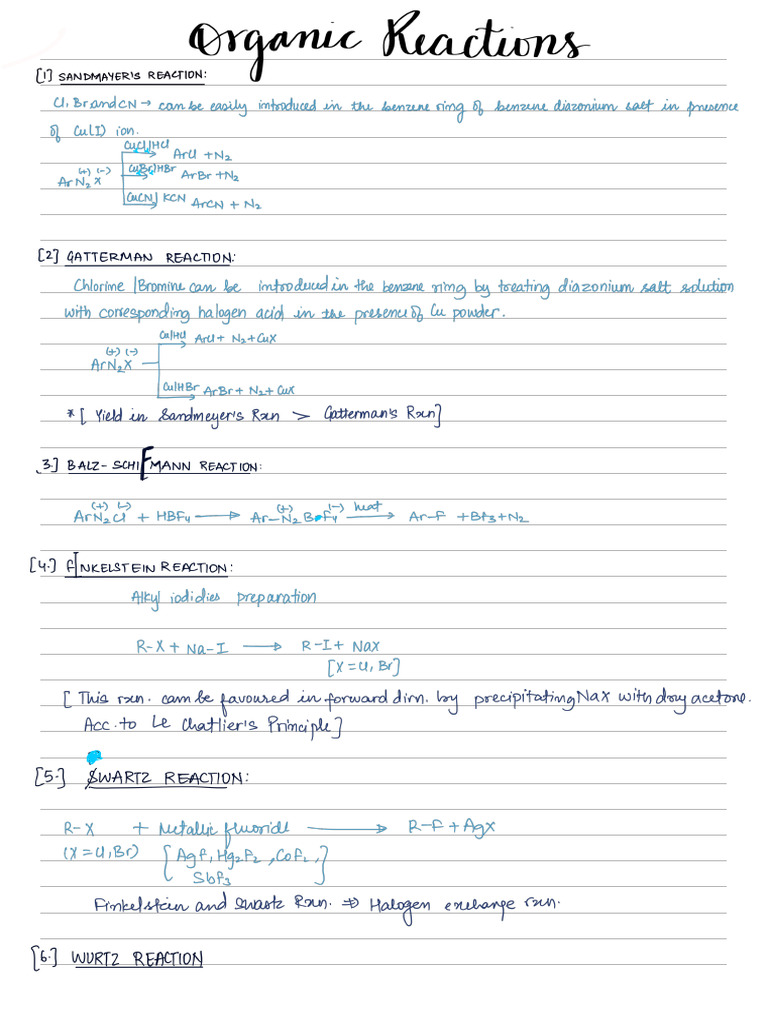 Organic Reactions
[1] SANDMAYER'S REACTION:
Cl, Br and CN → can be easily introduced in the benzene ring of benzene diazonium salt in presence
of Cu(I) ion.
CuCl/HCl
ArCl + N2
(+) (-)
ArN2X
CuBr/HBr
ArBr + N2
CuCN/KCN
ArCN + N2
[2] GATTERMAN REACTION:
Chlorime /Bromine can be introduced in the benzene ring by treating diazonium salt solution
with corresponding halogen acid in the presence of Cu powder.
Cu/HCl
ArCl + N2 + CuX
(+) (-)
ArN2X
Cu/HBr
ArBr + N2 + CuX
*[ Yield in Sandmeyer's Rxn > Gatterman's Rxn]
3.] BALZ-SCHIFMANN REACTION:
(+) (-) (+) (-) heat
ArN2Cl + HBF4 → Ar-N2 BF4 → Ar-F + BF3 + N2
[4.] FINKELSTEIN REACTION:
Alkyl iodidies preparation
R-X + Na-I → R-I + NaX
[X = Cl, Br]
[ This rxn. can be favoured in forward dirn. by precipitating NaX with dry acetone.
Acc. to Le Chatlier's Principle]
[5.] SWARTZ REACTION:
R-X + Metallic fluoride → R-F + AgX
(X = Cl, Br) [AgF, Hg2F2, CoF2,
SbF3]
Finkelstein and Swartz Rxn. ⇒ Halogen exchange rxn.
[6.] WURTZ REACTION